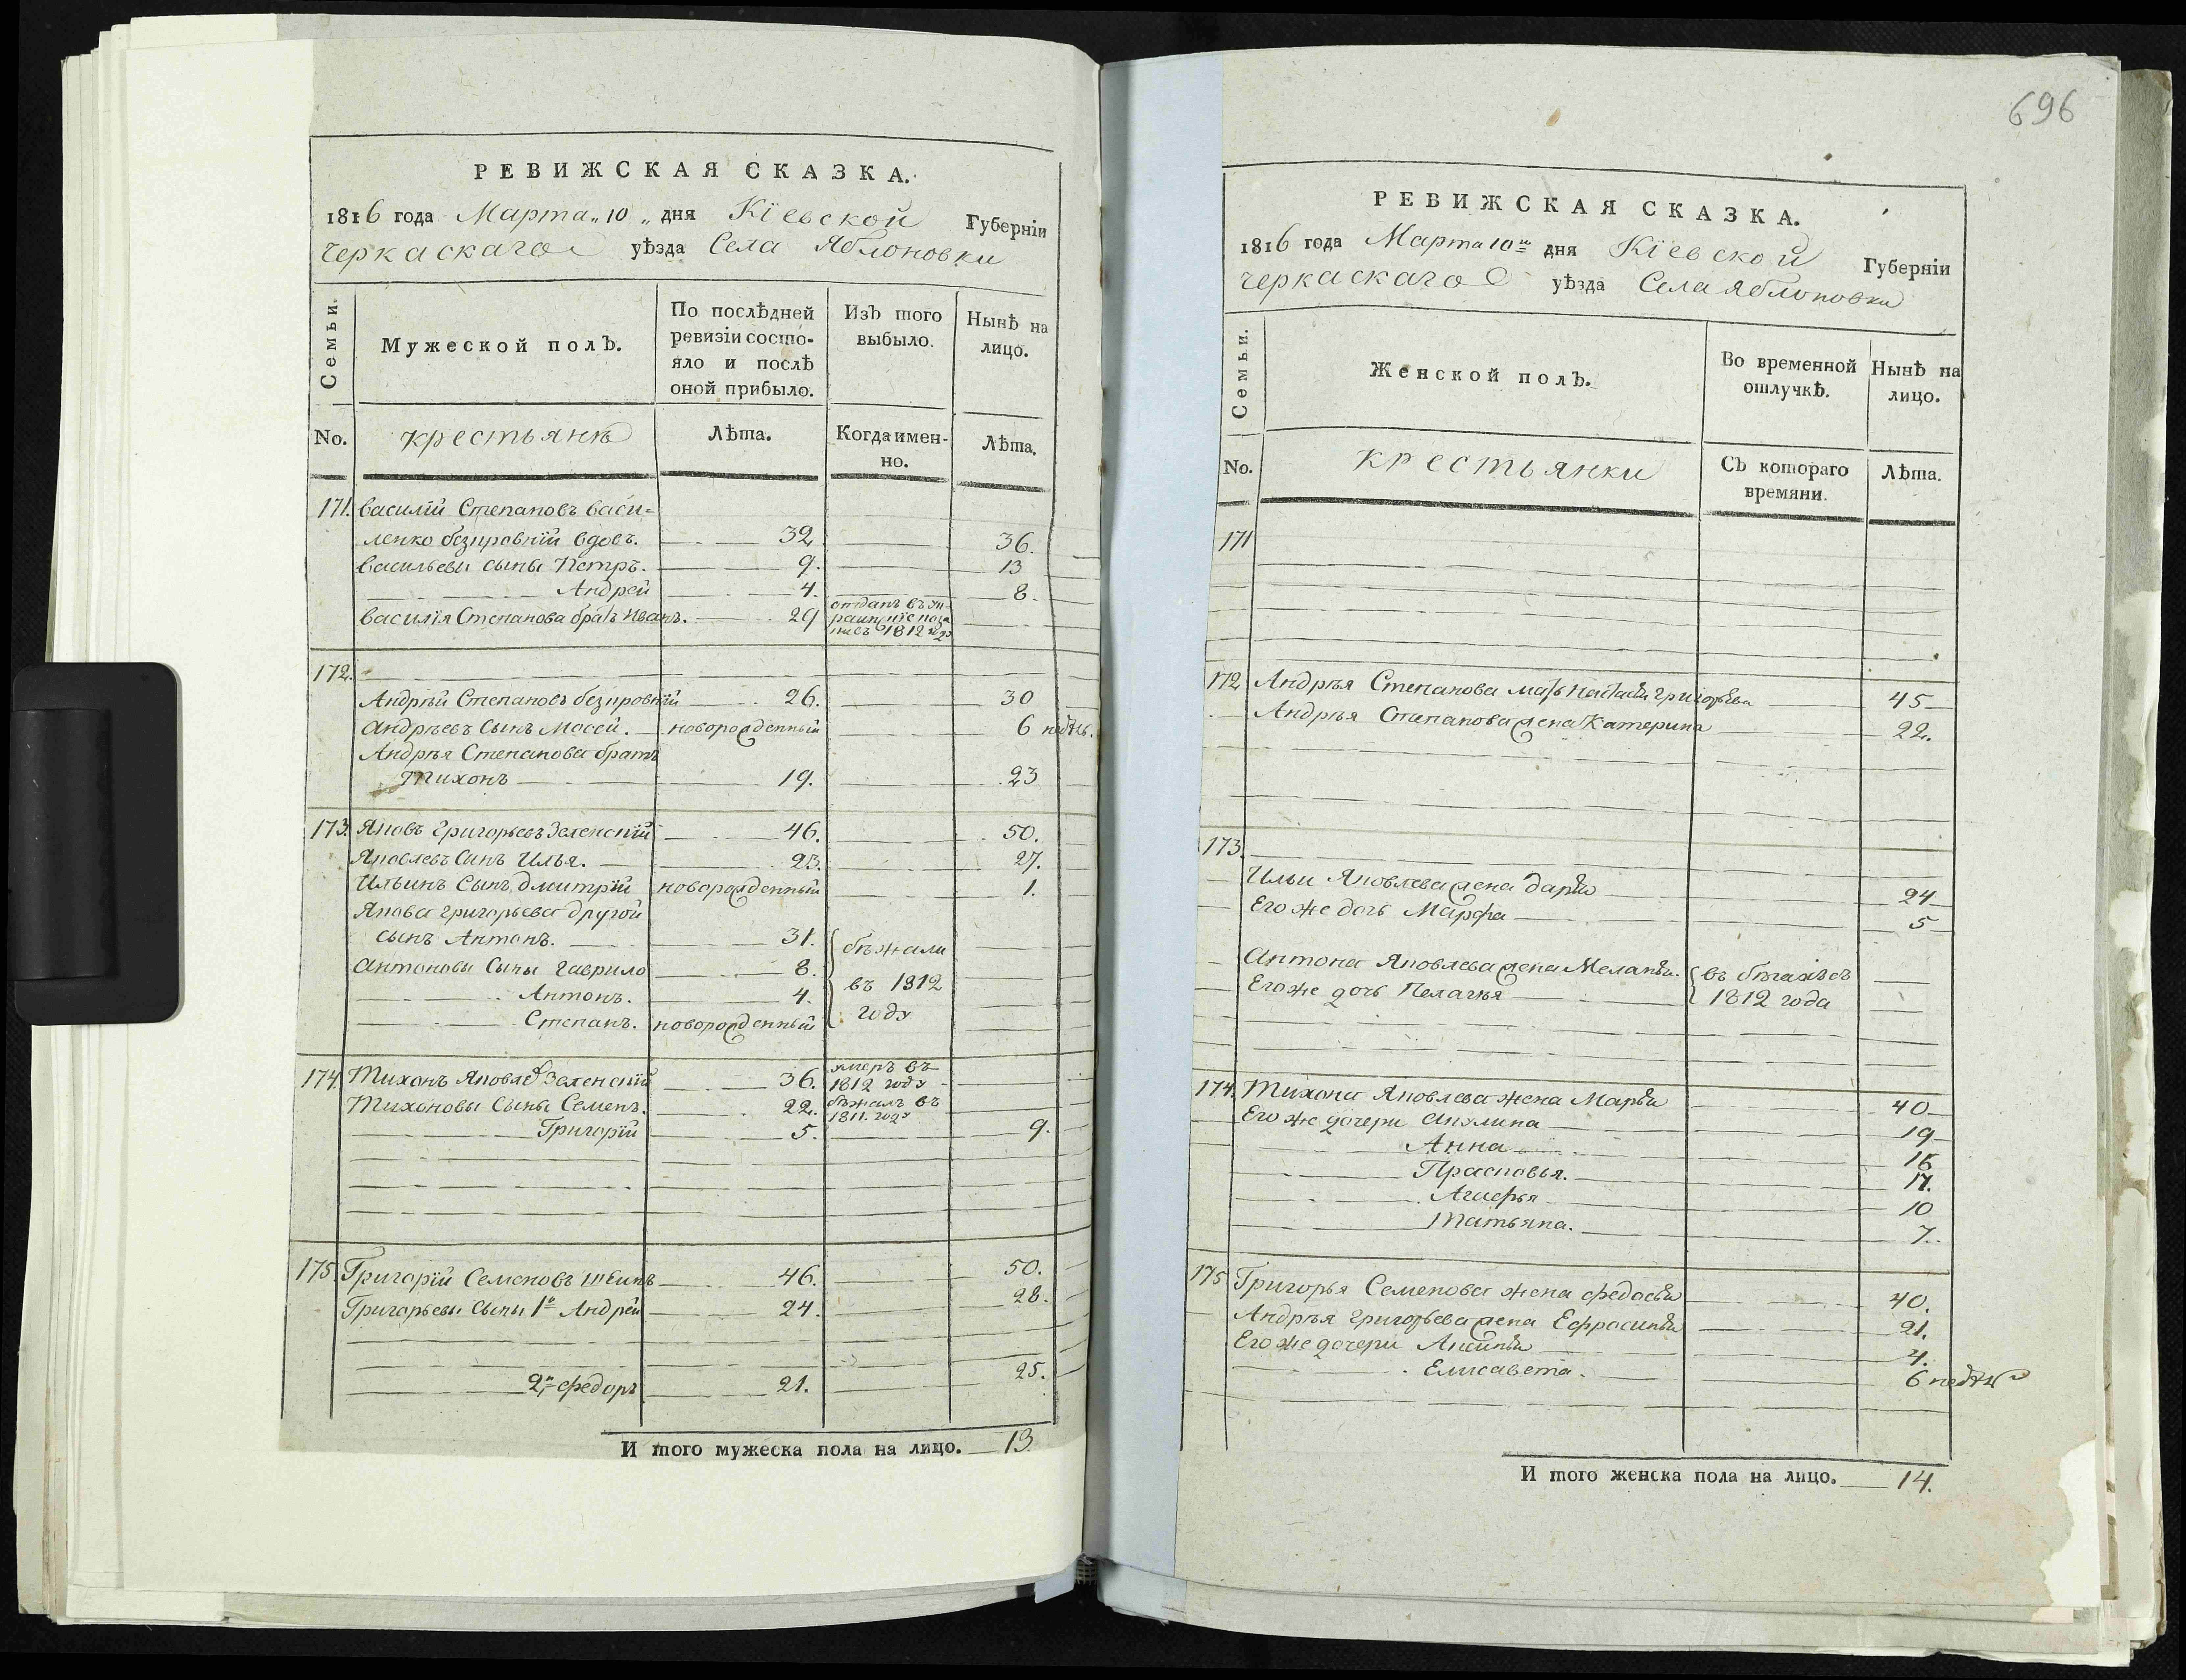 РЕВИЖСКАЯ СКАЗКА.
1816 года Марта „ 10 „ дня Кіевской Губерніи
Черкаскаго уѣзда Села Яблоновки
Семьи.
Мужеской полъ.
По послѣдней ревизіи состояло и послѣ оной прибыло.
Изъ того выбыло.
Нынѣ на лицо.
No. крестьянѣ Лѣта. Когда именно. Лѣта.
171. Василій Степановъ Васи=
ленко безировній вдовъ. 32 36.
Васильеви сыны Петръ. 9. 13
Андрей 4. 8.
Василія Степанова братъ Иванъ. 29 1812
172.
Андрѣй Степановъ безировній 26. 30
Андрѣевъ Сынъ Мосей. новорожденный 6 недѣль.
Андрѣя Степанова братъ
Тихонъ 19. 23
173. Яковъ Григорьевъ Зеленскій 46. 50.
Яковлевъ Синъ Илья. 23. 27.
Ильинъ Сынъ Дмитрій новорожденный 1.
Якова Григорьева другой
сынъ Антонъ. 31. бѣжали
Антоновы Сыны Гаврило 8. въ 1812
Антонъ. 4. году
Степанъ. новорожденный
174. Тихонъ Яковлевъ Зеленскій 36. умеръ въ 1812 году
Тихоновы Сыны Семенъ. 22. бѣжалъ въ 1811. году
Григорій 5. 9.
175. Григорій Семеновъ 46. 50.
Григорьевы сыны 1й Андрей 24. 28.
2й Федоръ 21. 25.
И того мужеска пола на лицо. 13
696
РЕВИЖСКАЯ СКАЗКА.
1816 года Марта 10го дня Кіевской Губерніи
Черкаскаго уѣзда Села Яблоновки
Семьи.
Женской полъ.
Во временной отлучкѣ.
Нынѣ на лицо.
No. крестьянки Съ котораго времяни. Лѣта.
171
172 Андрѣя Степанова мать Настасія Григорьева 45
Андрѣя Степанова жена Катерина 22.
173.
Ильи Яковлева жена Дарія 24
Его же дочь Марфа 5
Антона Яковлева жена Меланія. въ бѣгахъ съ
Его же дочь Пелагѣя 1812 года
174. Тихона Яковлева жена Марія 40
Его же дочери Акулина 19
Анна 16
Прасковья. 17.
Агафья 10
Татьяна. 7.
175 Григорья Семенова жена Федосія 40.
Андрѣя Григорьева жена Ефросинія 21.
Его же дочери Аксинія 4.
Елисавета. 6 недѣль
И того женска пола на лицо. 14.